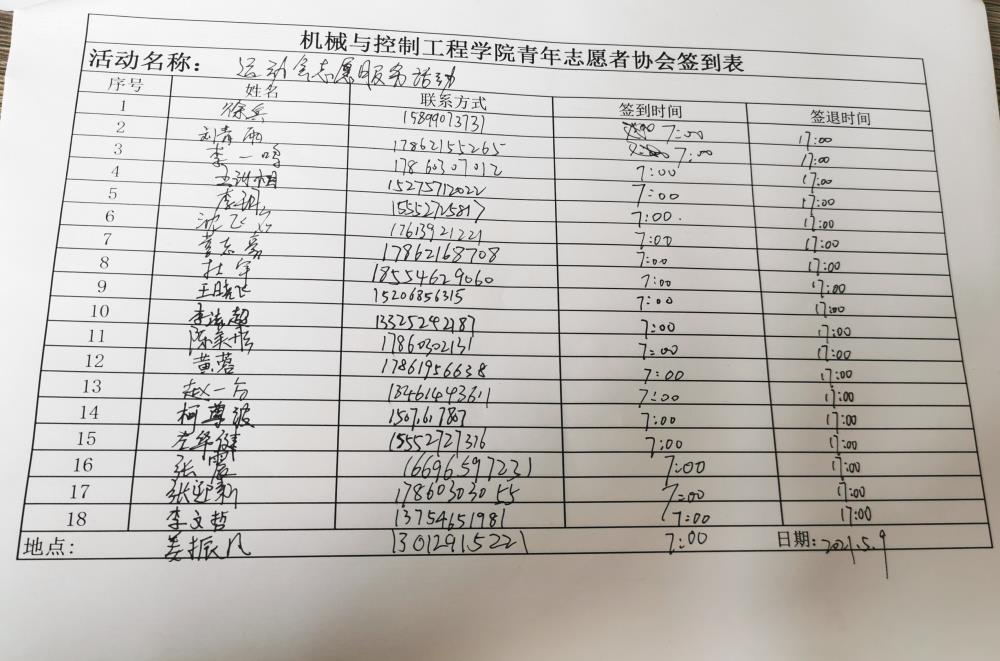 机械与控制工程学院青年志愿者协会签到表
活动名称： 运动会志愿服务活动
序号 姓名 联系方式 签到时间 签退时间
1 徐兵 15899073731 7:00 17:00
2 刘青雨 17862155265 7:00 17:00
3 李一鸣 17860307012 7:00 17:00
4 15275712022 7:00 17:00
5 李 15552725817 7:00. 17:00
6 沈飞 17613921221 7:00 17:00
7 袁志豪 17862168708 7:00 17:00
8 杜宇 18554629060 7:00 17:00
9 王晓飞 15206856315 7:00 17:00
10 李 超 13325242187 7:00 17:00
11 陈美彤 17860302131 7:00 17:00
12 黄蓉 17861956638 7:00 17:00
13 赵一 13461493611 7:00 17:00
14 柯尊波 7:00 17:00
15 左华健 15552727316 7:00 17:00
16 张震 16696597231 7:00 17:00
17 张迎新 17860303055 7:00 17:00
18 李文哲 13754651981 7:00 17:00
地点： 姜振凡 13012915221 7:00 日期：2021.5.9